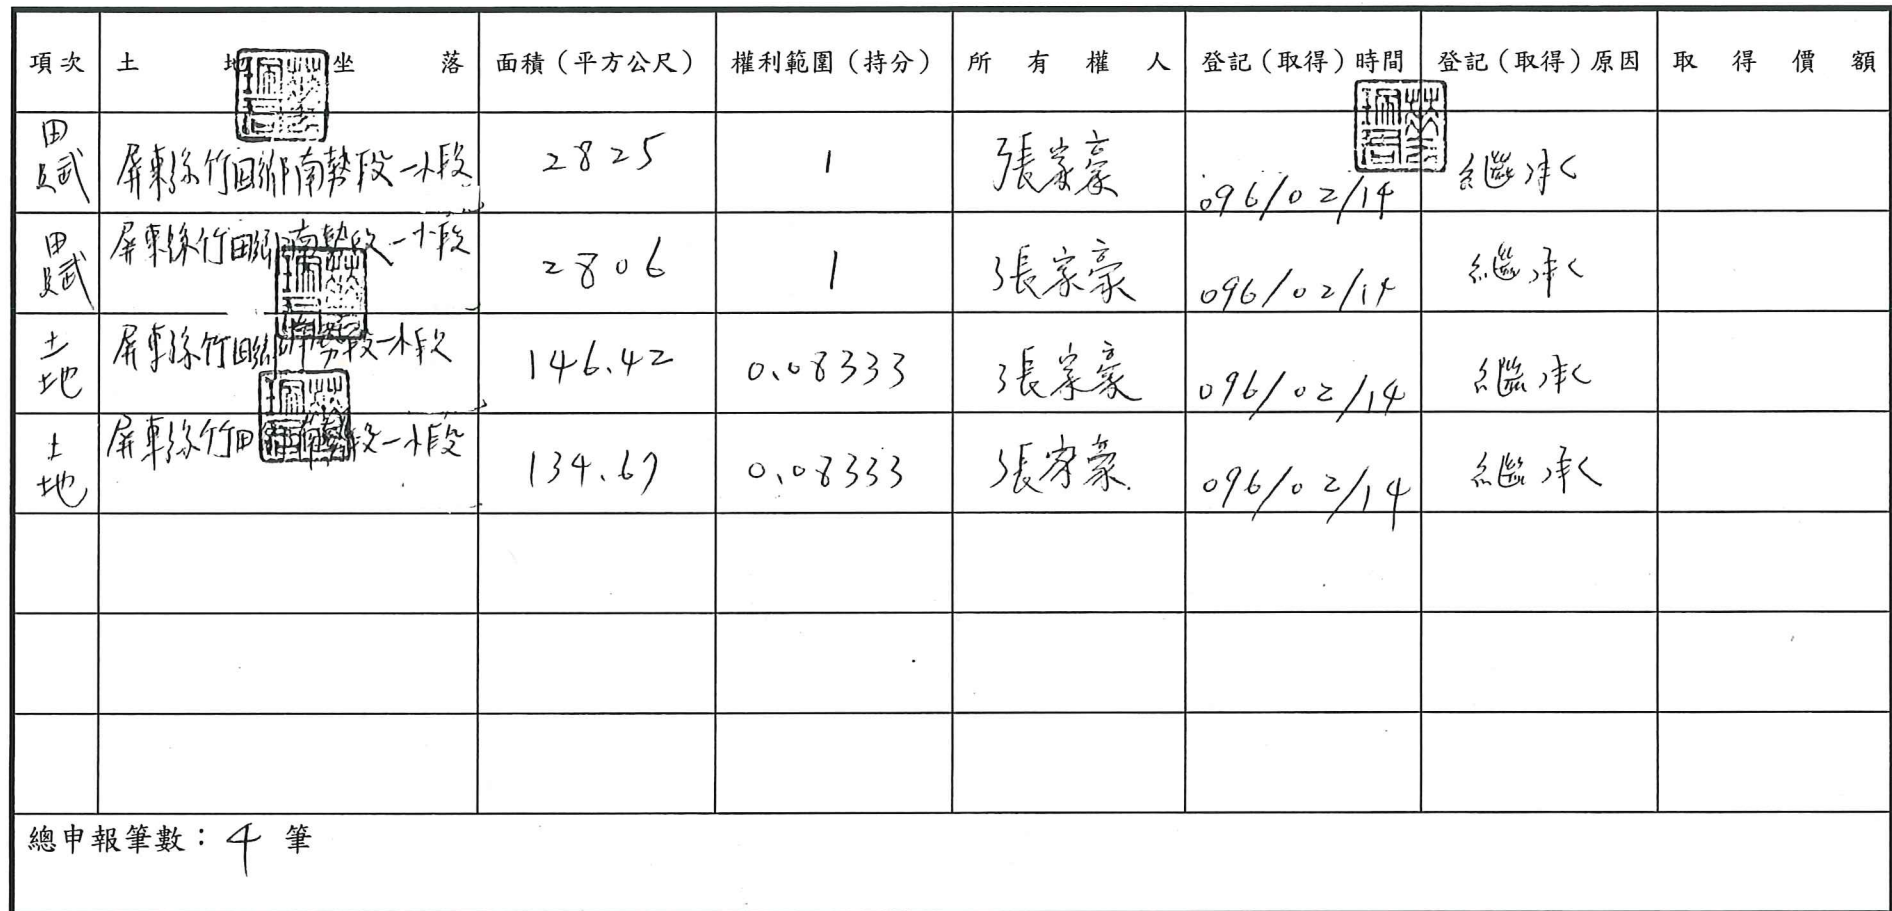 項次 土地坐落 面積（平方公尺） 權利範圍（持分） 所有權人 登記（取得）時間 登記（取得）原因 取得價額
田賦 屏東縣竹田鄉南勢段一小段 2825 1 張家豪 096/02/14 繼承
田賦 屏東縣竹田鄉南勢段一小段 2806 1 張家豪 096/02/14 繼承
土地 屏東縣竹田鄉南勢段一小段 146.42 0.08333 張家豪 096/02/14 繼承
土地 屏東縣竹田鄉南勢段一小段 134.67 0.08333 張家豪 096/02/14 繼承
總申報筆數：4 筆